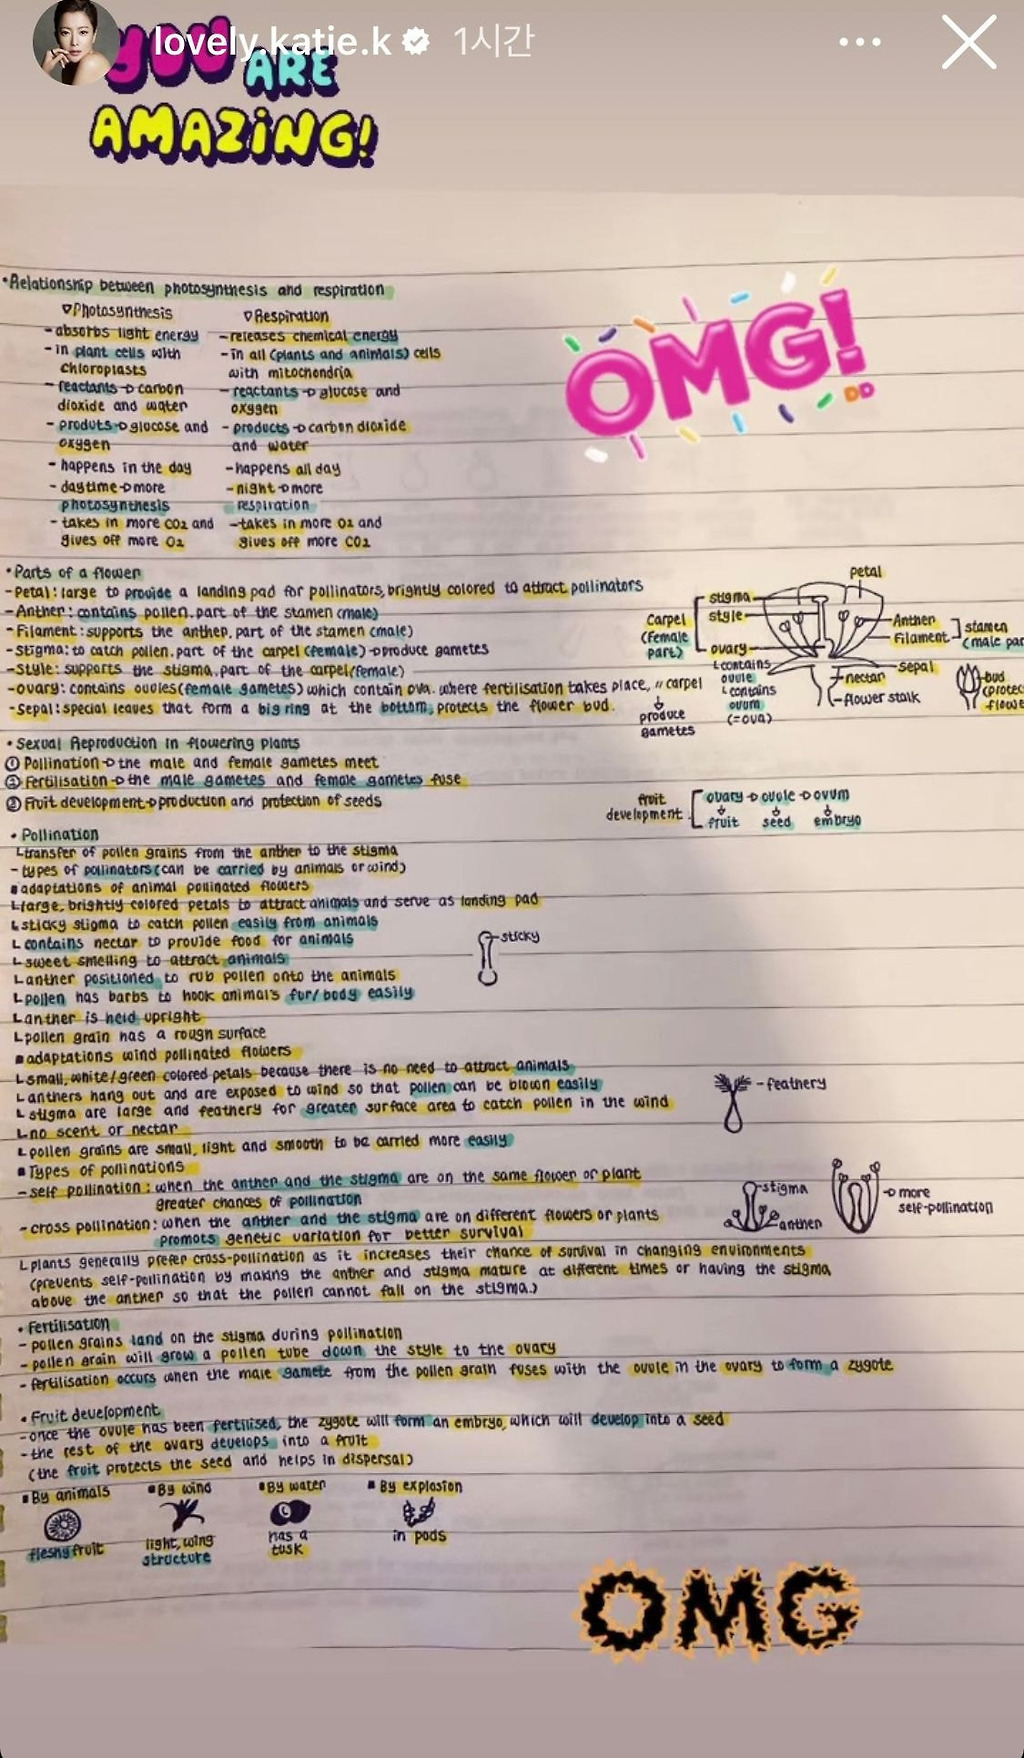 lovely.katie.k 1시간
YOU ARE
AMAZING!
•Relationship between photosynthesis and respiration
OMG!
▽Photosynthesis
- absorbs light energy
- in plant cells with
chloroplasts
- reactants → carbon
dioxide and water
- produts → glucose and
oxygen
- happens in the day
- daytime → more
photosynthesis
- takes in more CO2 and
gives off more O2
▽Respiration
- releases chemical energy
- in all (plants and animals) cells
with mitochondria
- reactants → glucose and
oxygen
- products → carbon dioxide
and water
- happens all day
- night → more
respiration
- takes in more O2 and
gives off more CO2
•Parts of a flower
- Petal: large to provide a landing pad for pollinators, brightly colored to attract pollinators
- Anther: contains pollen. part of the stamen (male)
- Filament: supports the anther. part of the stamen (male)
- Stigma: to catch pollen. part of the carpel (female) → produce gametes
- Style: supports the stigma. part of the carpel (female)
- ovary: contains ovules (female gametes) which contain ova. where fertilisation takes place, " carpel
- Sepal: special leaves that form a big ring at the bottom, protects the flower bud.
↓
produce
gametes
petal
stigma
style
Carpel
(female
part)
ovary
↳contains
ovule
↳contains
ovum
(=ova)
Anther
Filament
stamen
(male par
sepal
nectar
flower stalk
bud
(protec
flowe
• Sexual Reproduction in flowering plants
① Pollination → the male and female gametes meet
② Fertilisation → the male gametes and female gametes fuse
③ Fruit development → production and protection of seeds
fruit
development
ovary → ovule → ovum
↓ ↓ ↓
fruit seed embryo
• Pollination
↳transfer of pollen grains from the anther to the stigma
- types of pollinators (can be carried by animals or wind)
▪adaptations of animal pollinated flowers
↳large, brightly colored petals to attract animals and serve as landing pad
↳sticky stigma to catch pollen easily from animals
↳contains nectar to provide food for animals
↳sweet smelling to attract animals
↳anther positioned to rub pollen onto the animals
↳pollen has barbs to hook animal's fur/body easily
↳anther is held upright
↳pollen grain has a rough surface
sticky
▪adaptations wind pollinated flowers
↳small, white/green colored petals because there is no need to attract animals
↳anthers hang out and are exposed to wind so that pollen can be blown easily
↳stigma are large and feathery for greater surface area to catch pollen in the wind
↳no scent or nectar
↳pollen grains are small, light and smooth to be carried more easily
- feathery
▪Types of pollinations
- self pollination: when the anther and the stigma are on the same flower or plant
greater chances of pollination
- cross pollination: when the anther and the stigma are on different flowers or plants
promots genetic variation for better survival
↳plants generally prefer cross-pollination as it increases their chance of survival in changing environments
(prevents self-pollination by making the anther and stigma mature at different times or having the stigma
above the anther so that the pollen cannot fall on the stigma.)
stigma
anther
→ more
self-pollination
• Fertilisation
- pollen grains land on the stigma during pollination
- pollen grain will grow a pollen tube down the style to the ovary
- fertilisation occurs when the male gamete from the pollen grain fuses with the ovule in the ovary to form a zygote
• Fruit development
- once the ovule has been fertilised, the zygote will form an embryo, which will develop into a seed
- the rest of the ovary develops into a fruit
(the fruit protects the seed and helps in dispersal)
▪By animals
fleshy fruit
▪By wind
light, wing
structure
▪By water
has a
tusk
▪By explosion
in pods
OMG